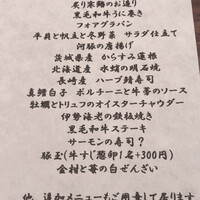 炙り寒鰤のお造り
黒毛和牛うに巻き
フォアグラパン
平貝と帆立と冬野菜 サラダ仕立て
河豚の唐揚げ
茨城県産 からすみ蓮根
北海道産 水蛸の明石焼
長崎産 ハーブ鯖寿司
真鱈白子 ポルチーニと牛蒡のソース
牡蠣とトリュフのオイスターチャウダー
伊勢海老の鉄板焼き
黒毛和牛ステーキ
サーモンの寿司?
豚玉(牛すじ葱卵1名+300円)
金柑と苺の白ぜんざい
他、追加メニューもご用意して居ります